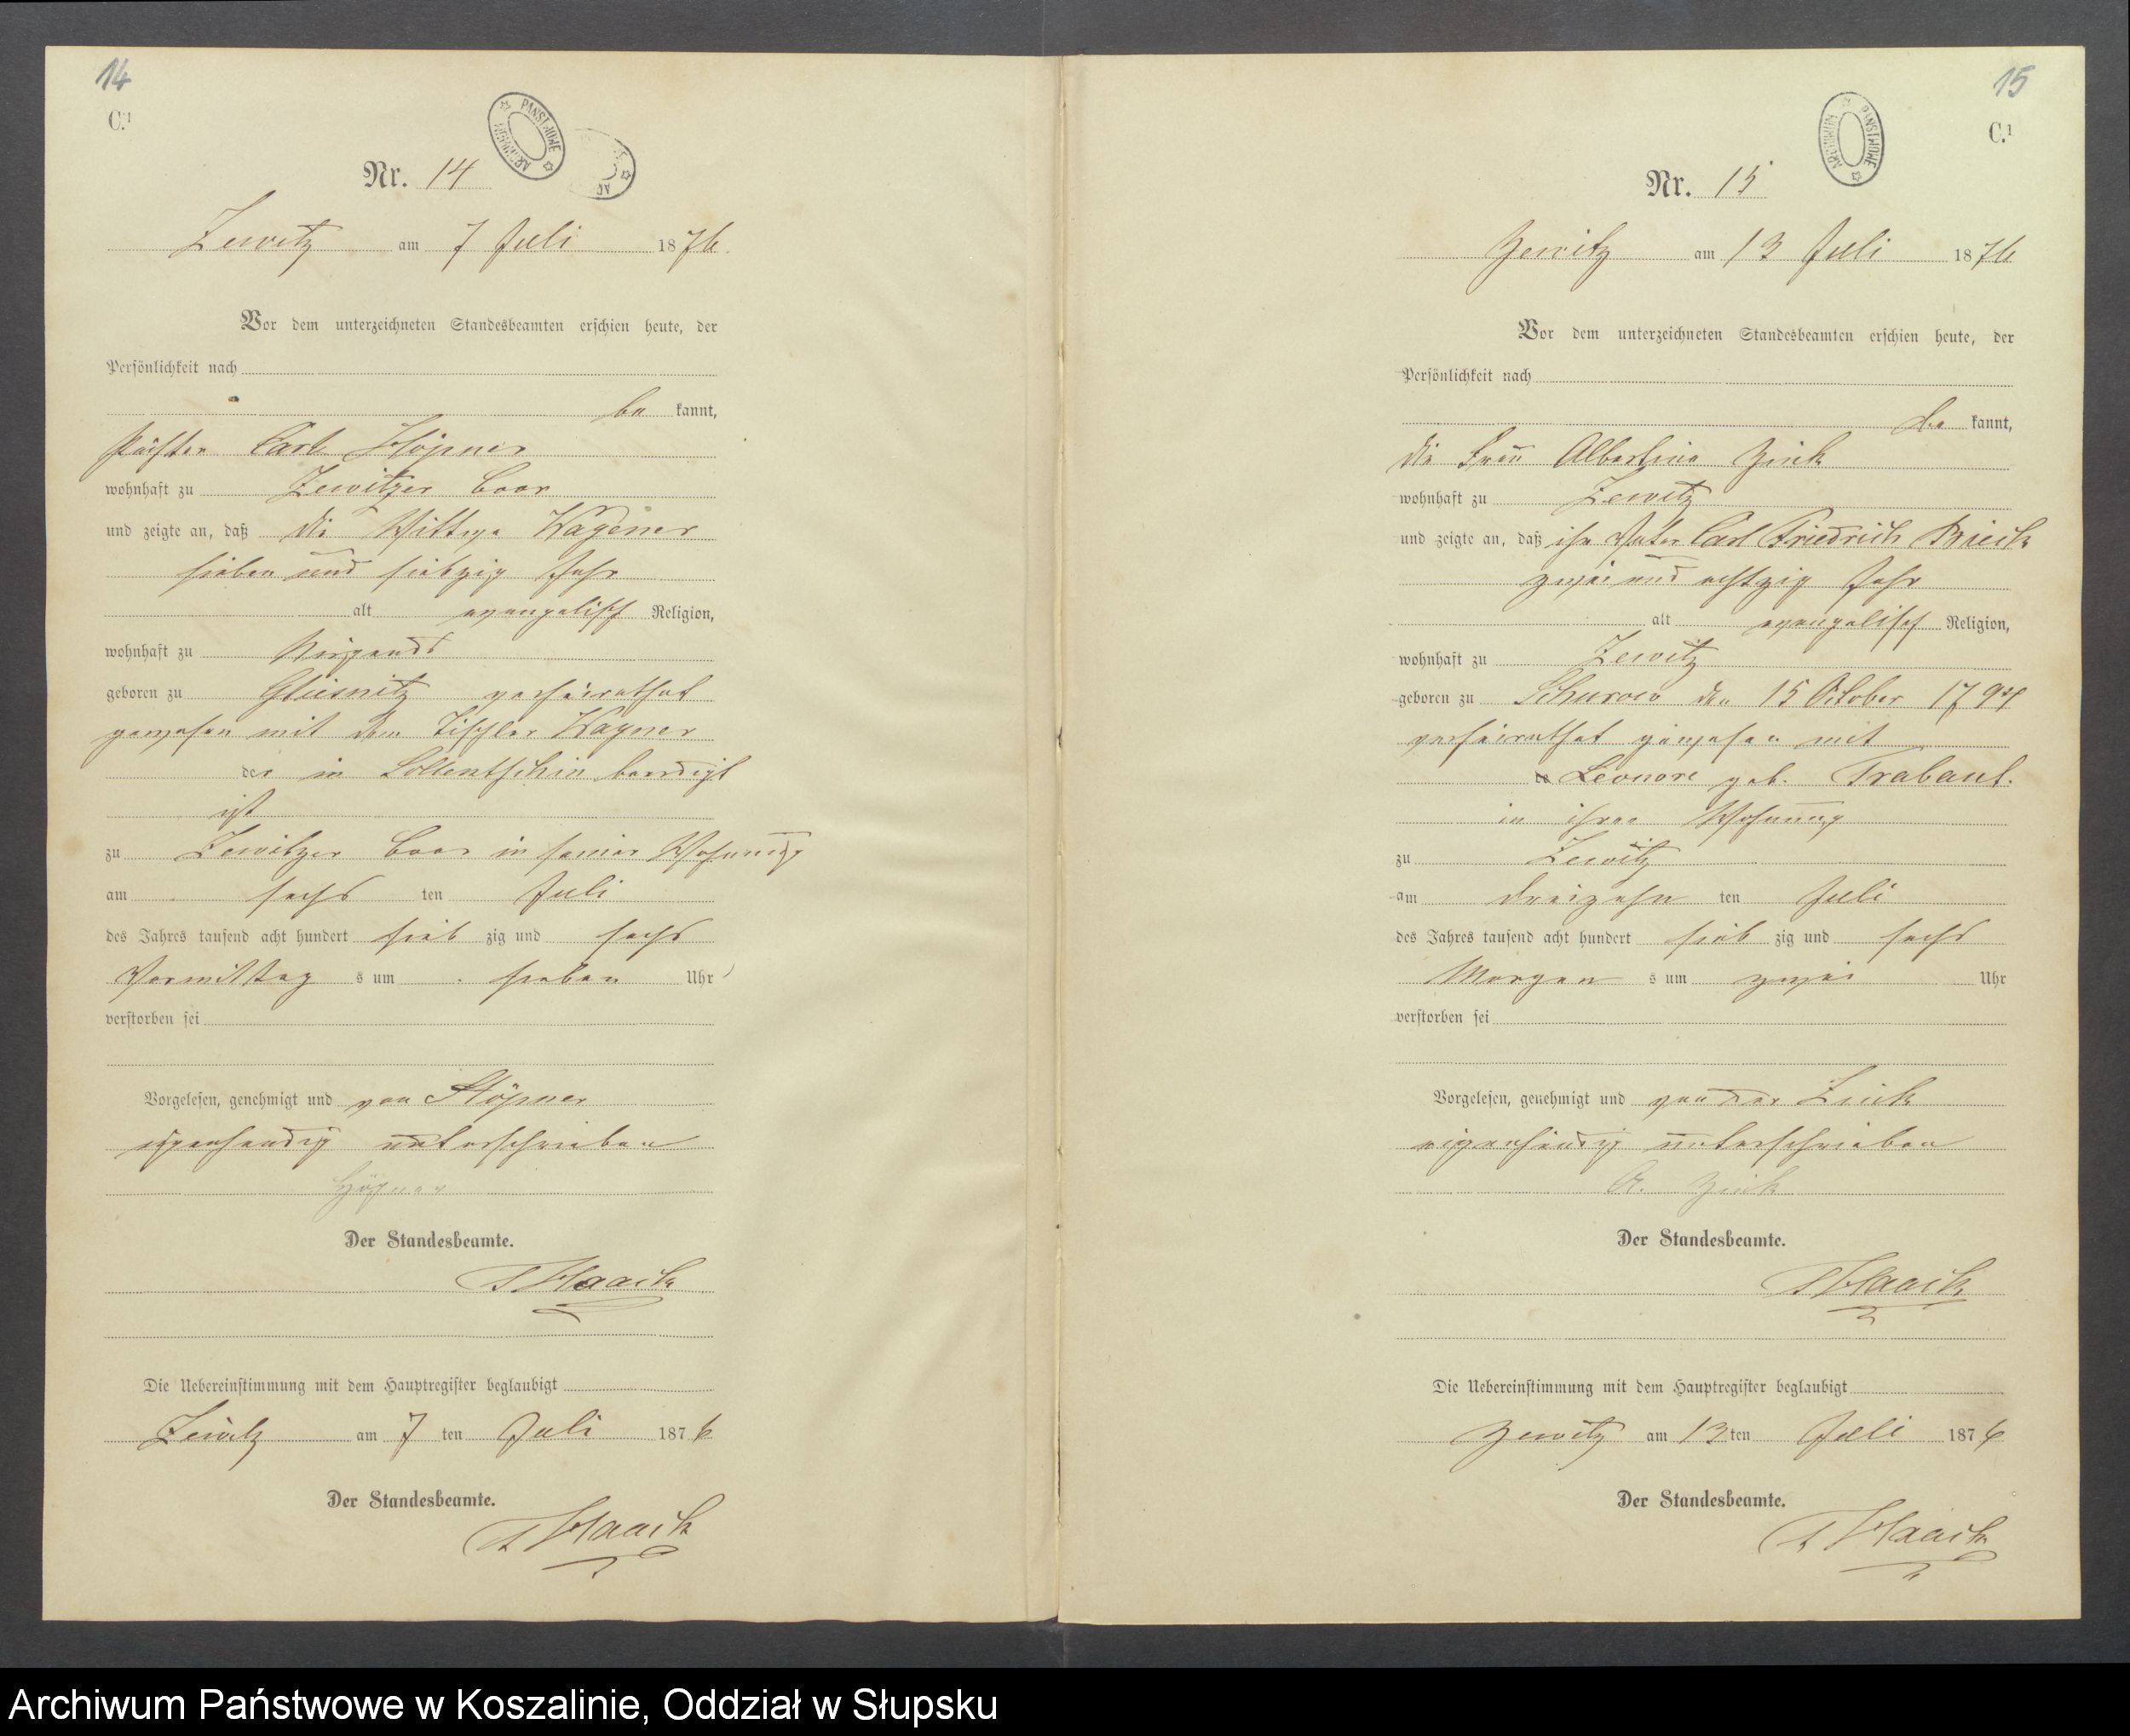 14
C.1
PANSTWOWE ARCHIWUM
Nr. 14
Zewitz am 7 Juli 1876.
Vor dem unterzeichneten Standesbeamten erschien heute, der
Persönlichkeit nach
be kannt,
Pächter Carl Höpner
wohnhaft zu Zewitzer Boor
und zeigte an, daß die Wittwe Wagener
sieben und siebzig Jahr
alt evangelisch Religion,
wohnhaft zu Nirgends
geboren zu Gliesnitz verheirathet
gewesen mit dem Tischler Wagner
der in beerdigt
ist
zu Zewitzer Boor in seiner Wohnung
am sechs ten Juli
des Jahres tausend acht hundert sieb zig und sechs
Vormittag s um sieben Uhr
verstorben sei
Vorgelesen, genehmigt und von Höpner
eigenhändig unterschrieben
Höpner
Der Standesbeamte.
Haack
Die Uebereinstimmung mit dem Hauptregister beglaubigt
Zewitz am 7 ten Juli 1876
Der Standesbeamte.
Haack
15
C.1
PANSTWOWE ARCHIWUM
Nr. 15
Zewitz am 13 Juli 1876
Vor dem unterzeichneten Standesbeamten erschien heute, der
Persönlichkeit nach
be kannt,
die Frau Albertine Zick
wohnhaft zu Zewitz
und zeigte an, daß ihr Vater Carl Friedrich
zwei und achtzig Jahr
alt evangelisch Religion,
wohnhaft zu Zewitz
geboren zu Schurow den 15 October 1794
verheirathet gewesen mit
Leonore geb. Trabant.
in ihrer Wohnung
zu Zewitz
am dreizehn ten Juli
des Jahres tausend acht hundert sieb zig und sechs
Morgen s um zwei Uhr
verstorben sei
Vorgelesen, genehmigt und von der Zick
eigenhändig unterschrieben
A. Zick
Der Standesbeamte.
Haack
Die Uebereinstimmung mit dem Hauptregister beglaubigt
Zewitz am 13 ten Juli 1876
Der Standesbeamte.
Haack
Archiwum Państwowe w Koszalinie, Oddział w Słupsku